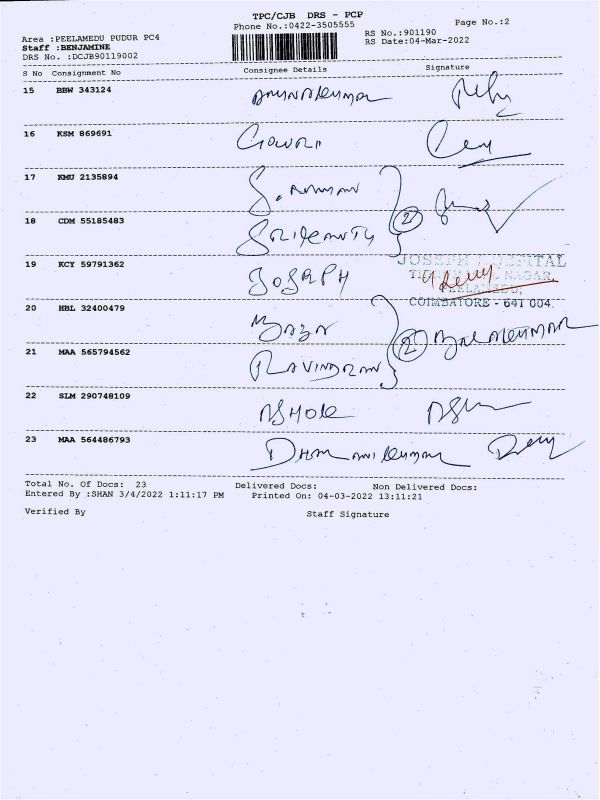 TPC/CJB DRS - PCP
Phone No.:0422-3505555
Page No.:2
Area :PEELAMEDU PUDUR PC4
RS No.:901190
Staff :BENJAMINE
RS Date:04-Mar-2022
DRS No. :DCJB90119002
S No Consignment No Consignee Details Signature
15 BBW 343124 Arunakumar
16 KSM 869691 Gowri
17 KMU 2135894 S. Raman
18 CDM 55185483 Srikanth 2
19 KCY 59791362 Joseph
JOSEPH HOSPITAL
NAGAR,
PEELAMEDU,
COIMBATORE - 641 004.
20 HBL 32400479 Babu
21 MAA 565794562 Ravindran 2 Balakumar
22 SLM 290748109 Ashok
23 MAA 564486793
Total No. Of Docs: 23 Delivered Docs: Non Delivered Docs:
Entered By :SHAN 3/4/2022 1:11:17 PM Printed On: 04-03-2022 13:11:21
Verified By Staff Signature